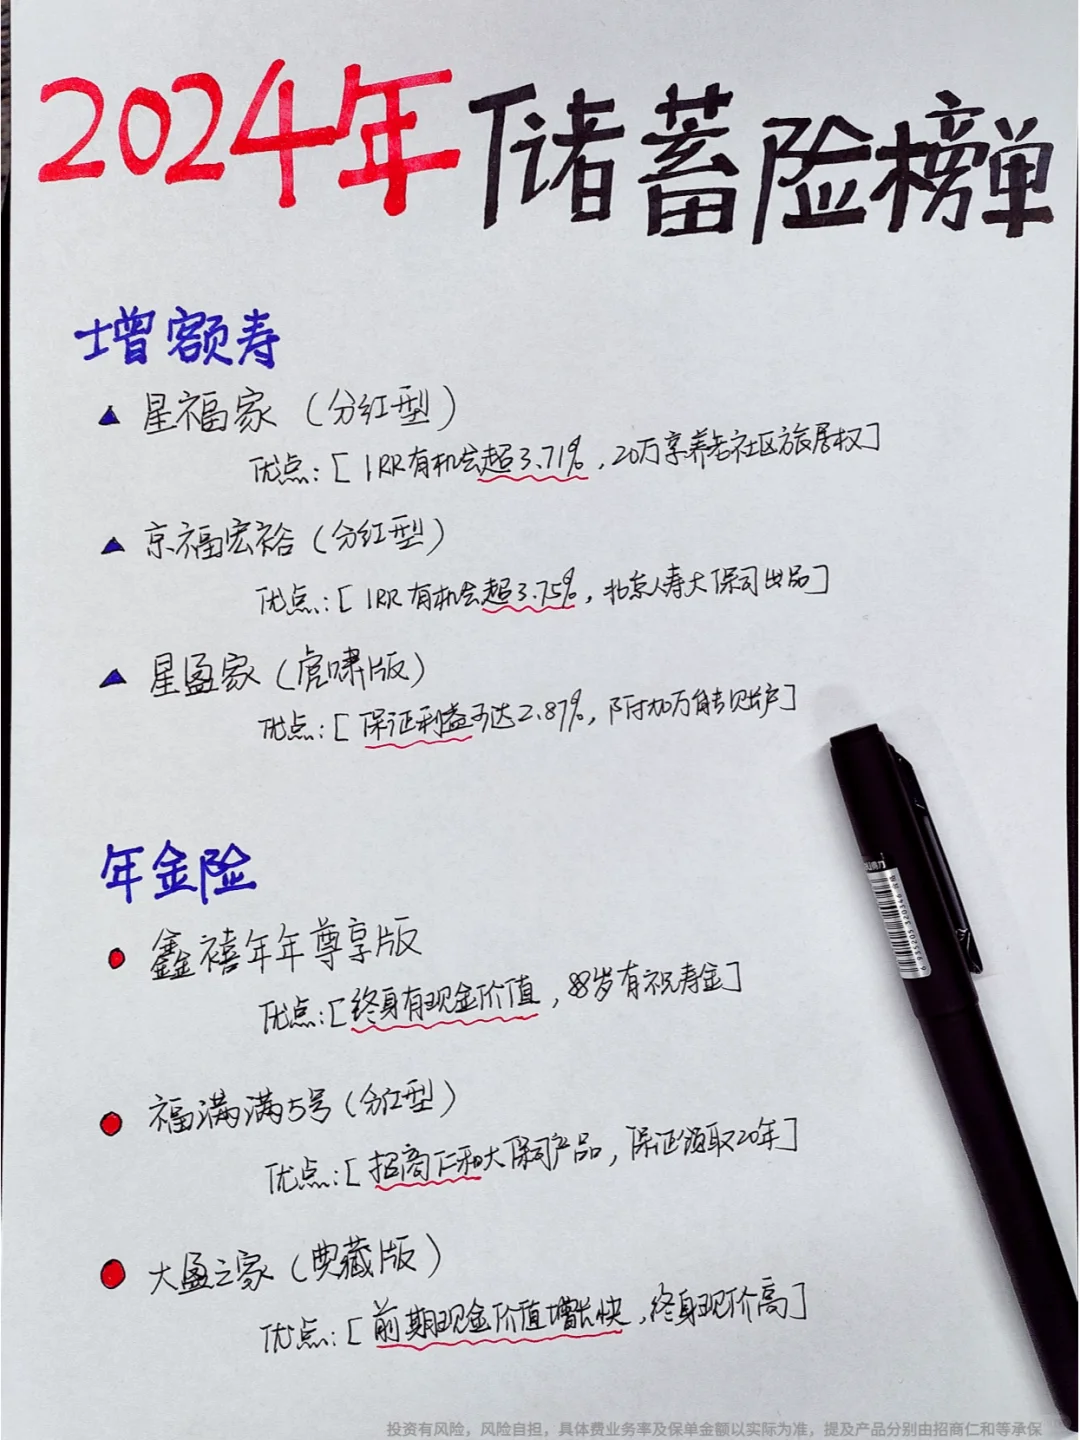 2024年储蓄险榜单
增额寿
星福家（分红型）
优点：[IRR有机会超3.71%，20万享养老社区旅居权]
京福宏裕（分红型）
优点：[IRR有机会超3.75%，北京人寿大保司出品]
星盈家（虎啸版）
优点：[保证利益可达2.87%，附加万能账户]
年金险
鑫禧年年尊享版
优点：[终身有现金价值，88岁有祝寿金]
福满满5号（分红型）
优点：[招商仁和大保司产品，保证领取20年]
大盈之家（典藏版）
优点：[前期现金价值增长快，终身现价高]
投资有风险，风险自担，具体费业务率及保单金额以实际为准，提及产品分别由招商仁和等承保